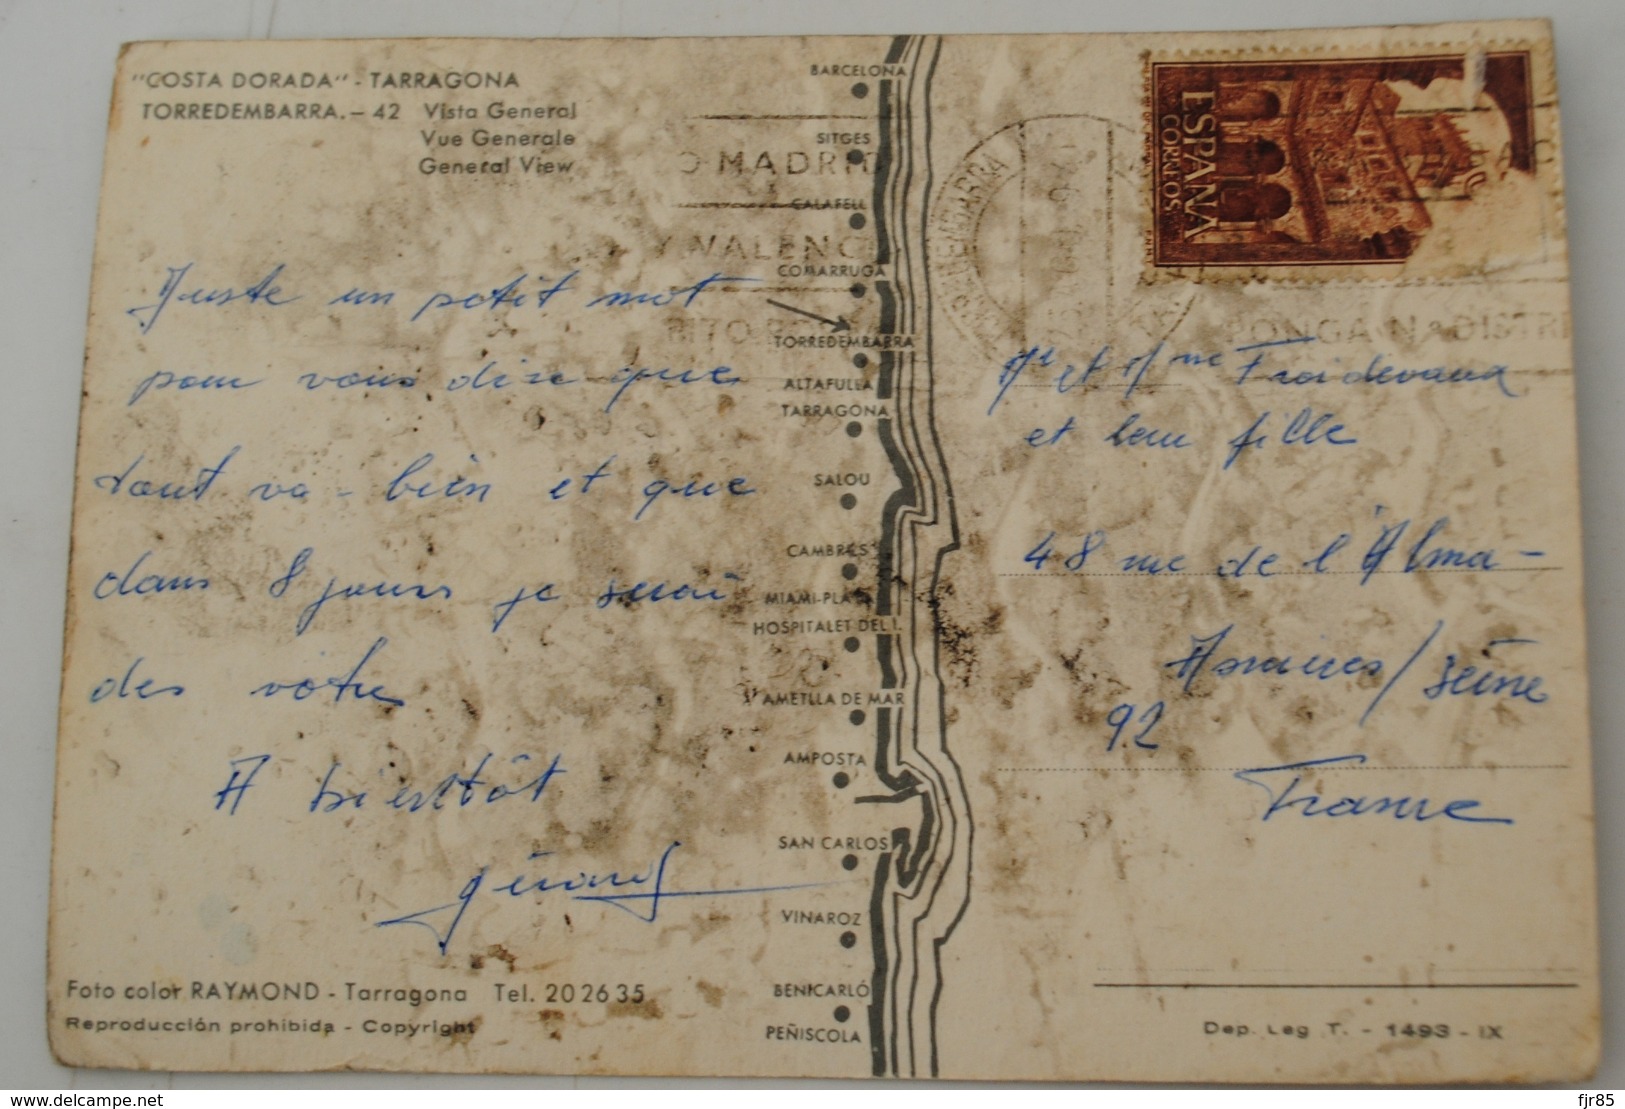 "COSTA DORADA" - TARRAGONA
TORREDEMBARRA. - 42 Vista General
Vue Generale
General View
Juste un petit mot
pour vous dire que
tout va bien et que
dans 8 jours je serai
des vôtres
A bientôt
Gérard
Foto color RAYMOND - Tarragona Tel. 20 26 35
Reproducción prohibida - Copyright
BARCELONA
SITGES
CALAFELL
COMARRUGA
TORREDEMBARRA
ALTAFULLA
TARRAGONA
SALOU
CAMBRILS
MIAMI-PLAYA
HOSPITALET DEL I.
AMETLLA DE MAR
AMPOSTA
SAN CARLOS
VINAROZ
BENICARLÓ
PEÑISCOLA
O MADRID
Y VALENC
PONGA Nº DISTRI
ESPAÑA
CORREOS
Mr et Mme Froidevaux
et leur fille
48 rue de l'Alma -
Asnières / Seine
92
France
Dep. Leg. T. - 1493 - IX
fjr85
delcampe.net